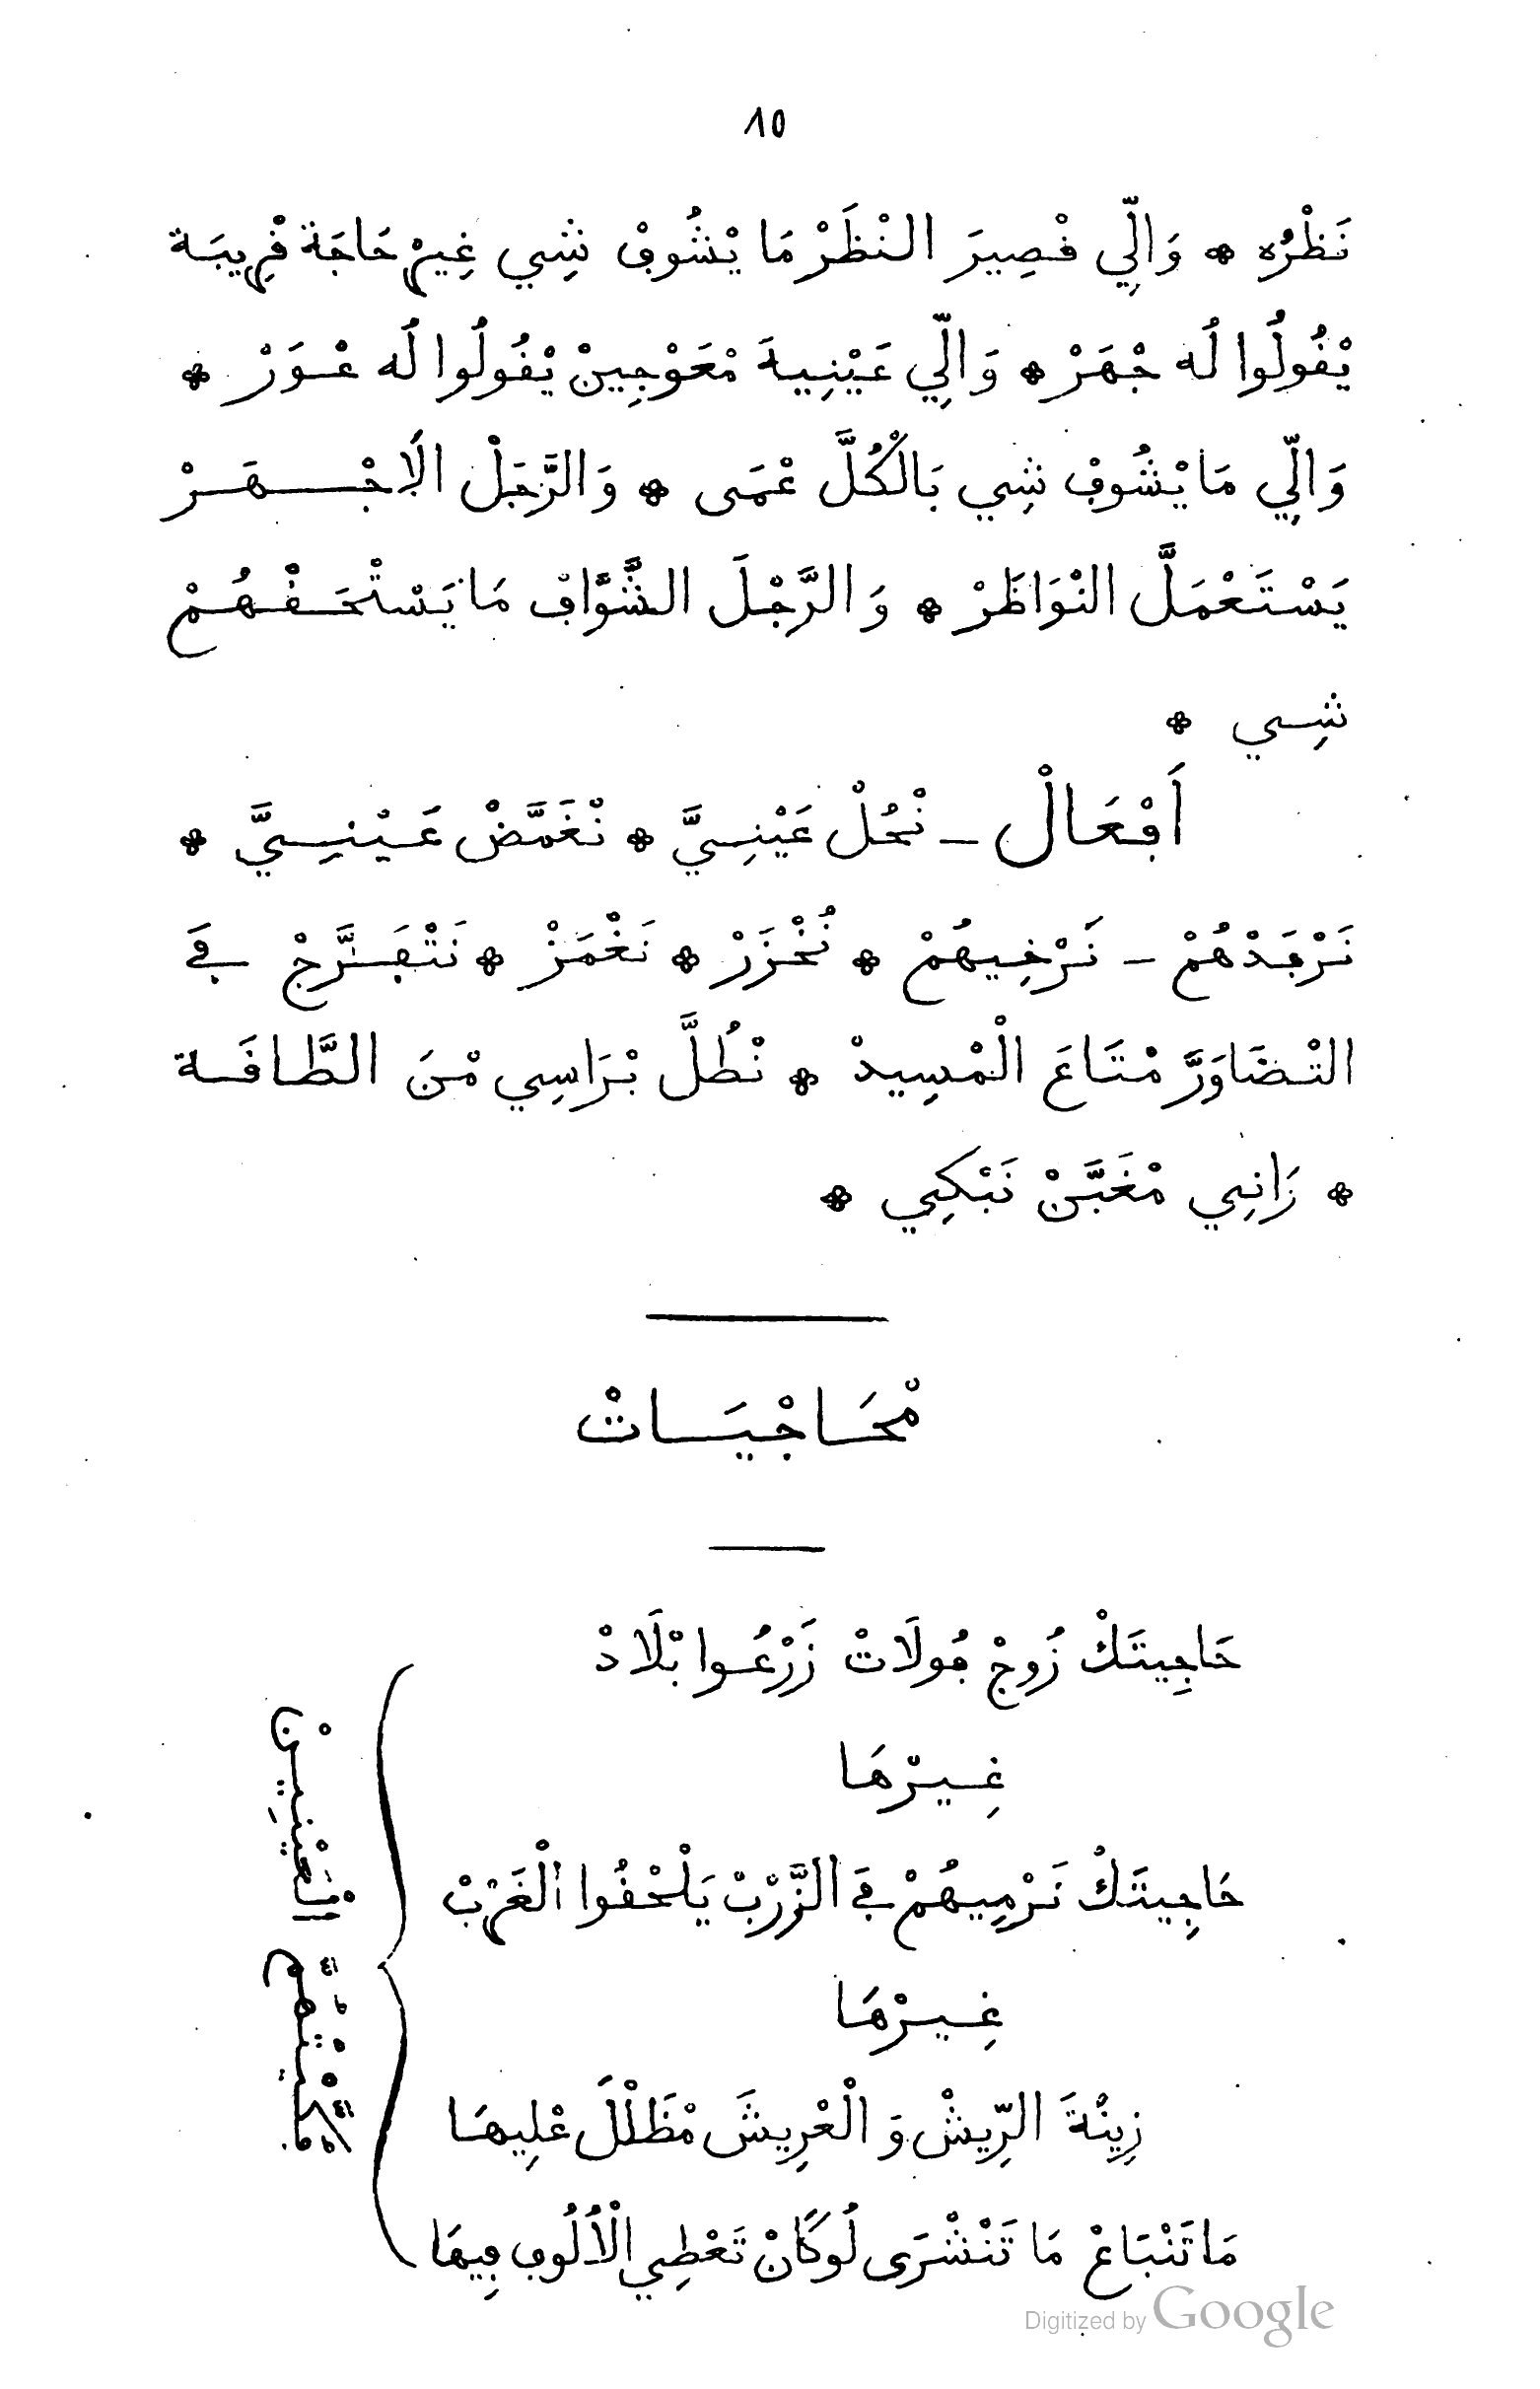 ١٥
نَظْرُه * وَالِّي قْصِيرَ النْظَرْ مَا يْشُوفْ شِي غِيرْ حَاجَة قْرِيبَة
يْقُولُوا لُه جْهَرْ * وَالِّي عَيْنِيهَ مْعَوْجِينْ يْقُولُوا لُه عْوَرْ *
وَالِّي مَا يْشُوفْ شِي بَالْكُلَّ عْمَى * وَالرَّجَلْ الَاجْهَرْ
يَسْتَعْمَلَّ النْوَاظَرْ * وَالرَّجْلَ الشَّوَّافْ مَا يَسْتْحَقْهُمْ
شِي *
أَفْعَالْ – نْحُلْ عَيْنِيَّ * نْغَمَّضْ عَيْنِيَّ *
نَرْفَدْهُمْ – نَرْخِيهُمْ * نُخْزَرْ * نَغْمَزْ * نَتْفَرَّجْ فِي
التْضَاوَرَّ مْتَاعَ الْمْسِيدْ * نْطُلَّ بْرَاسِي مْنَ الطَّاقَة
* رَانِي مْغَبَّنْ نَبْكِي *
مْحَاجْيَاتْ
حَاجِيتَكْ زُوجْ فُولَاتْ زَرْعُوا بْلَادْ
غِيرْهَا
حَاجِيتَكْ نَرْمِيهُمْ فِي الزَّرْبْ يَلْحْقُوا الْغَرْبْ
غِيرْهَا
زِينْةَ الرِّيشْ وَ الْعْرِيشَ مْظَلْلَ عْلِيهَا
مَا تَنْبَاعْ مَا تَنْشْرَى لُوكَانْ تَعْطِي الْأُلُوفْ فِيهَا
Digitized by Google